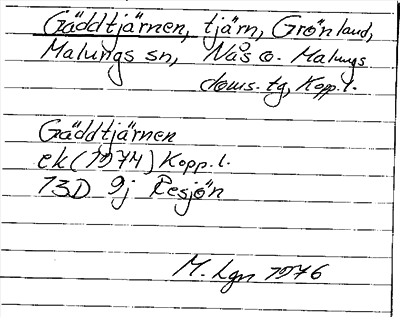 Gäddtjärnen, tjärn, Grönland,
Malungs sn, Nås o. Malungs
doms. tg, Kopp. l.
Gäddtjärnen
ek (1974) Kopp. l.
13D 9j Resjön
M. Lgn 1976